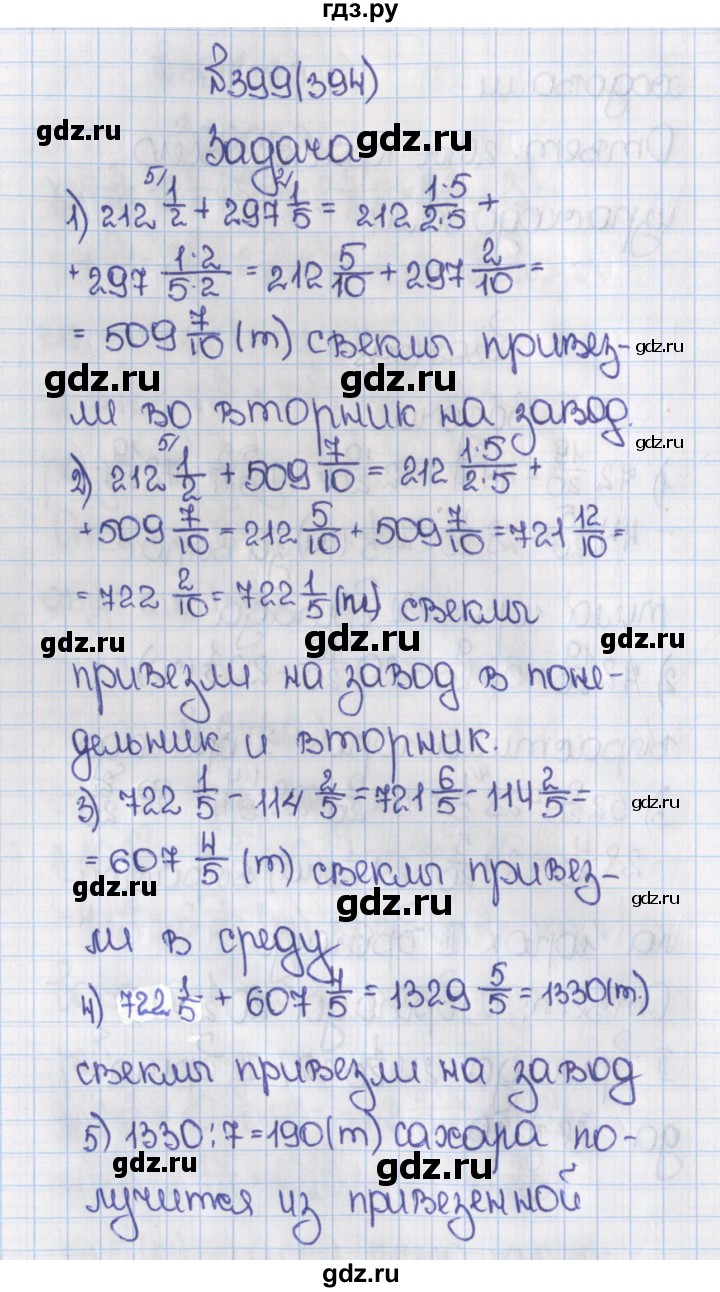 гдз.ру
№399(394)
gdz.ru
Задача gdz.ru
1) 212 5/ 1/2 + 297 2/ 1/5 = 212 1·5/2·5 +
+ 297 1·2/5·2 = 212 5/10 + 297 2/10 =
= 509 7/10 (т) свеклы привез-
gdz.ru gdz.ru gdz.ru
ли во вторник на завод.
gdz.ru
2) 212 5/ 1/2 + 509 7/10 = 212 1·5/2·5 +
+ 509 7/10 = 212 5/10 + 509 7/10 = 721 12/10 =
= 722 2/10 = 722 1/5 (т) свеклы
gdz.ru gdz.ru gdz.ru
привезли на завод в поне-
дельник и вторник.
3) 722 1/5 - 114 2/5 = 721 6/5 - 114 2/5 =
gdz.ru
= 607 4/5 (т) свеклы привез-
gdz.ru gdz.ru gdz.ru
ли в среду
4) 722 1/5 + 607 4/5 = 1329 5/5 = 1330 (т.)
свеклы привезли на завод
5) 1330:7=190(т) сахара по-
gdz.ru gdz.ru
лучится из привезенной
gdz.ru